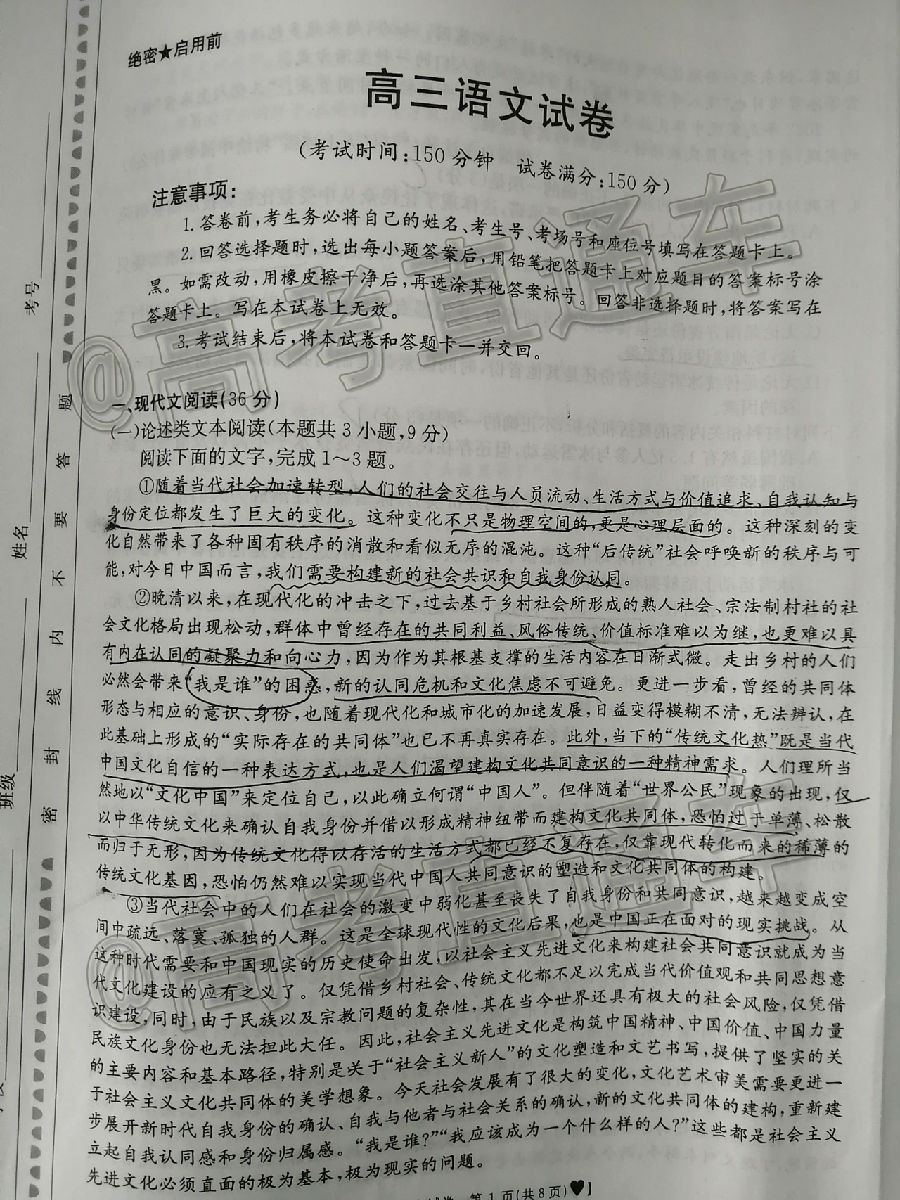 绝密★启用前
高三语文试卷
(考试时间:150分钟 试卷满分:150分)
注意事项:
1.答卷前,考生务必将自己的姓名、考生号、考场号和座位号填写在答题卡上。
2.回答选择题时,选出每小题答案后,用铅笔把答题卡上对应题目的答案标号涂
黑。如需改动,用橡皮擦干净后,再选涂其他答案标号。回答非选择题时,将答案写在
答题卡上。写在本试卷上无效。
3.考试结束后,将本试卷和答题卡一并交回。
一、现代文阅读(36分)
(一)论述类文本阅读(本题共3小题,9分)
阅读下面的文字,完成1~3题。
①随着当代社会加速转型,人们的社会交往与人员流动、生活方式与价值追求、自我认知与
身份定位都发生了巨大的变化。这种变化不只是物理空间的,更是心理层面的。这种深刻的变
化自然带来了各种固有秩序的消散和看似无序的混沌。这种“后传统”社会呼唤新的秩序与可
能,对今日中国而言,我们需要构建新的社会共识和自我身份认同。
②晚清以来,在现代化的冲击之下,过去基于乡村社会所形成的熟人社会、宗法制村社的社
会文化格局出现松动,群体中曾经存在的共同利益、风俗传统、价值标准难以为继,也更难以具
有内在认同的凝聚力和向心力,因为作为其根基支撑的生活内容在日渐式微。走出乡村的人们
必然会带来“我是谁”的困惑,新的认同危机和文化焦虑不可避免。更进一步看,曾经的共同体
形态与相应的意识、身份,也随着现代化和城市化的加速发展,日益变得模糊不清,无法辨认,在
此基础上形成的“实际存在的共同体”也已不再真实存在。此外,当下的“传统文化热”既是当代
中国文化自信的一种表达方式,也是人们渴望建构文化共同意识的一种精神需求。人们理所当
然地以“文化中国”来定位自己,以此确立何谓“中国人”。但伴随着“世界公民”现象的出现,仅
以中华传统文化来确认自我身份并借以形成精神纽带而建构文化共同体,恐怕过于单薄、松散
而归于无形,因为传统文化得以存活的生活方式都已经不复存在,仅靠现代转化而来的稀薄的
传统文化基因,恐怕仍然难以实现当代中国人共同意识的塑造和文化共同体的构建。
③当代社会中的人们在社会的激变中弱化甚至丧失了自我身份和共同意识,越来越变成空
间中疏远、落寞、孤独的人群。这是全球现代性的文化后果,也是中国正在面对的现实挑战。从
这种时代需要和中国现实的历史使命出发,以社会主义先进文化来构建社会共同意识就成为当
代文化建设的应有之义了。仅凭借乡村社会、传统文化都不足以完成当代价值观和共同思想意
识建设,同时,由于民族以及宗教问题的复杂性,其在当今世界还具有极大的社会风险,仅凭借
民族文化身份也无法担此大任。因此,社会主义先进文化是构筑中国精神、中国价值、中国力量
的主要内容和基本路径,特别是关于“社会主义新人”的文化塑造和文艺书写,提供了坚实的关
于社会主义文化共同体的美学想象。今天社会发展有了很大的变化,文化艺术审美需要更进一
步展开新时代自我身份的确认、自我与他者与社会关系的确认,新的文化共同体的建构,重新建
立起自我认同感和身份归属感。“我是谁?”“我应该成为一个什么样的人?”这些都是社会主义
先进文化必须直面的极为基本,极为现实的问题。
第1页(共8页)♥】
考号
姓名
班级
密封线内不要答题
@高考直通车
@高考直通车